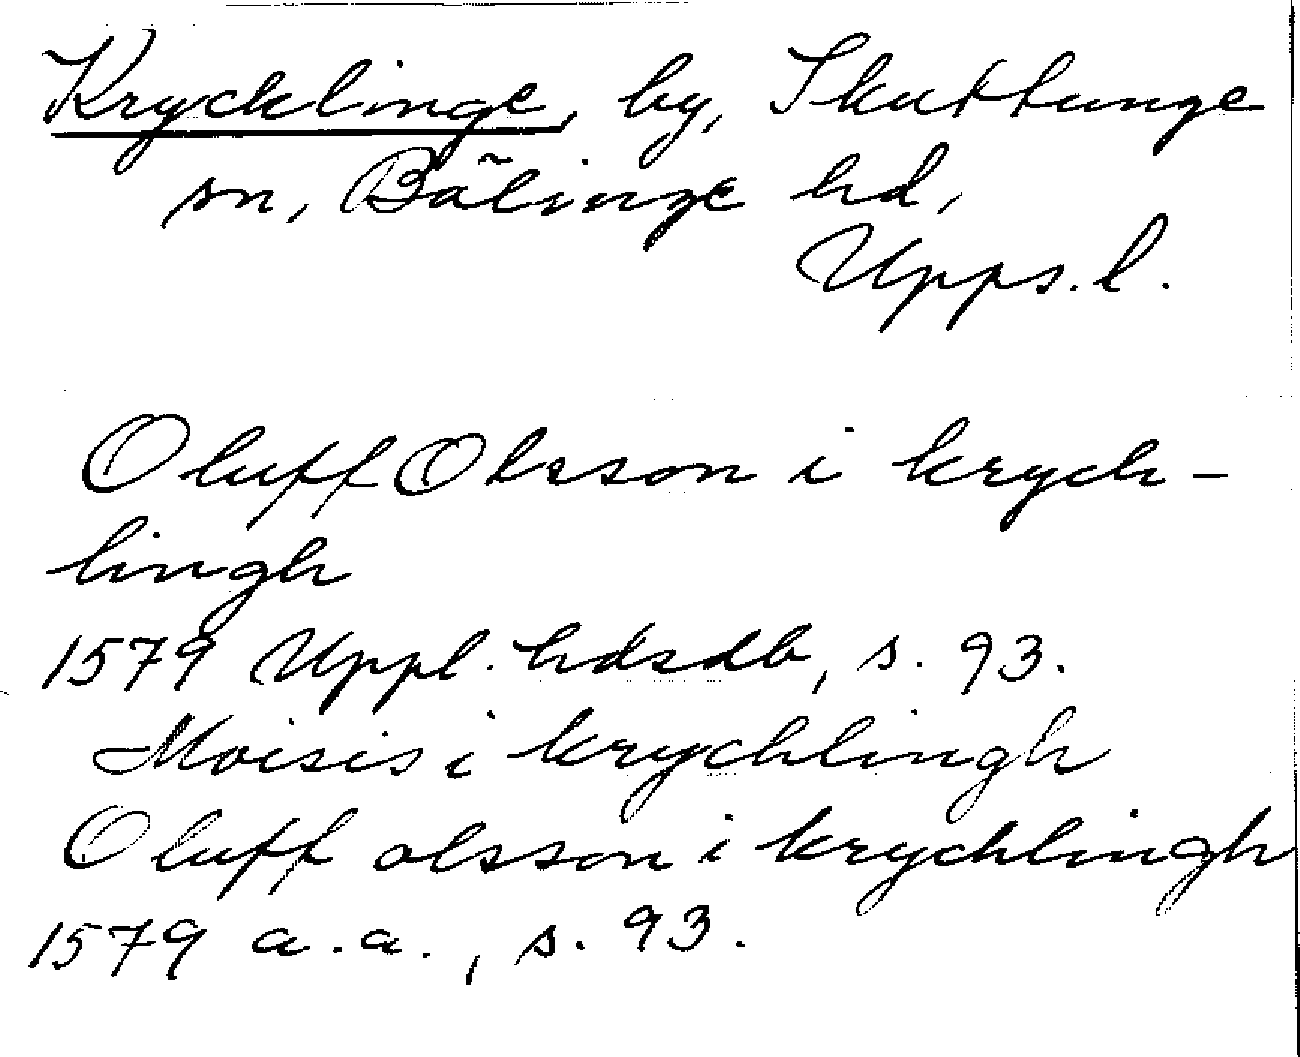 Krycklinge, by, Skuttunge
sn, Bälinge hd,
Upps. l.
Oluff Olsson i krych-
lingh
1579 Uppl. hdsdb, s. 93.
Moisis i krychlingh
Oluff olsson i krychlingh
1579 a.a., s. 93.